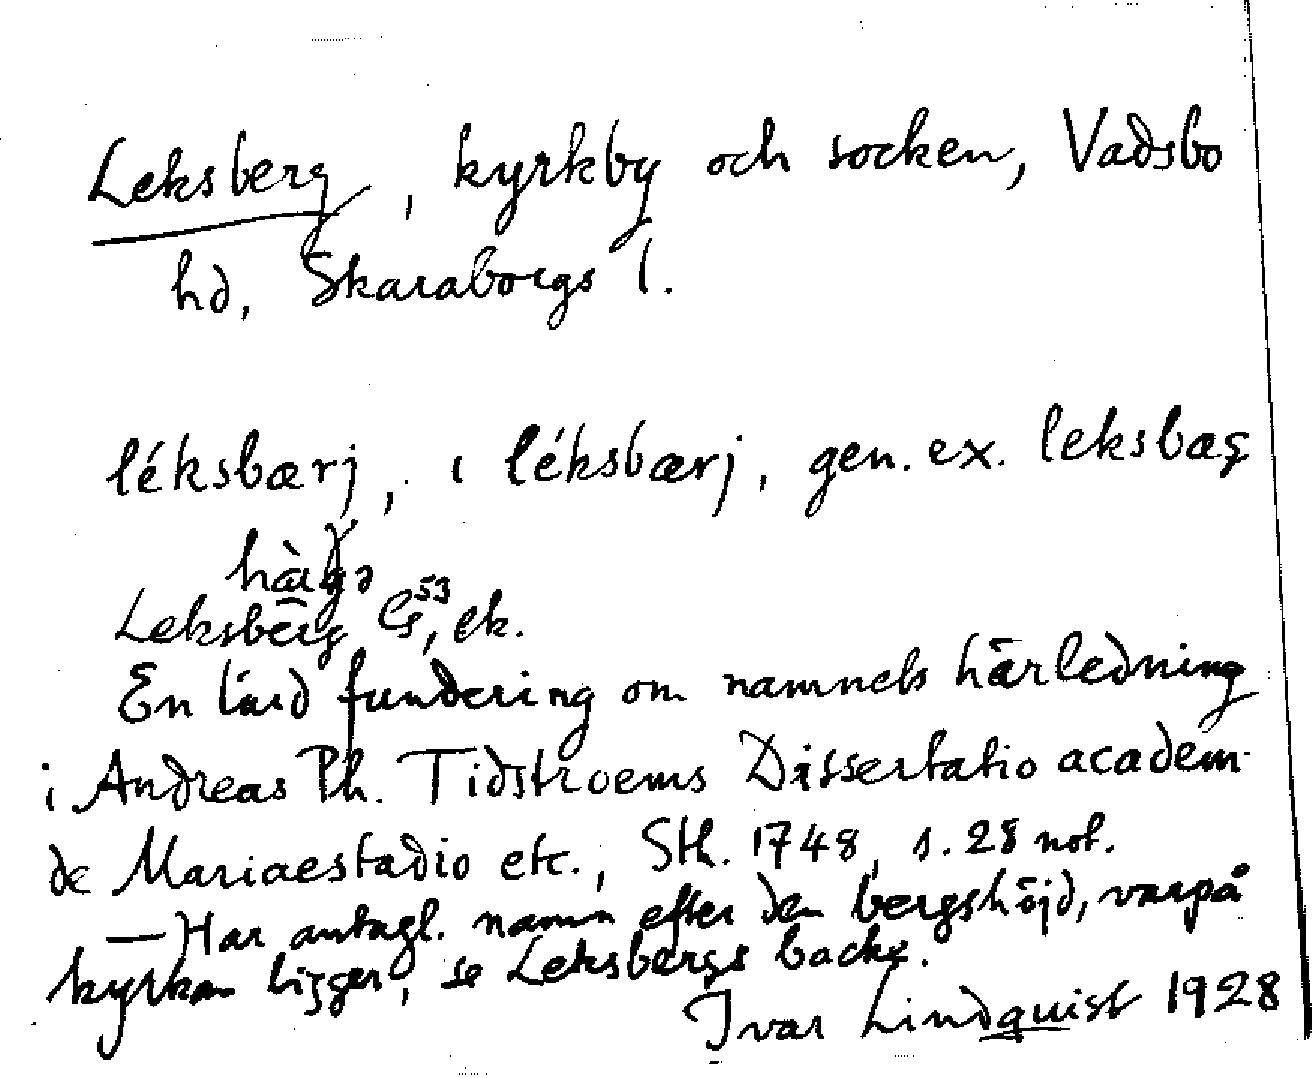 Leksberg, kyrkby och socken, Vadsbo
hd, Skaraborgs l.
léksbærj, i léksbærj, gen. ex. leksbæş
Leksberg G53, ek.
En lärd fundering om namnets härledning
i Andreas Ph. Tidstroems Dissertatio academ.
de Mariaestadio etc., Sth. 1748, s. 28 not.
— Har antagl. namn efter den bergshöjd, varpå
kyrkan ligger, se Leksbergs backe.
Ivar Lindquist 1928